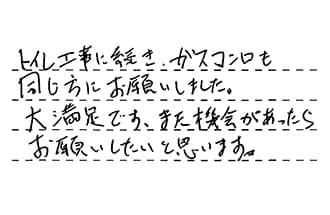 トイレ工事に続き、ガスコンロも
同じ方にお願いしました。
大満足です、また機会があったら
お願いしたいと思います。